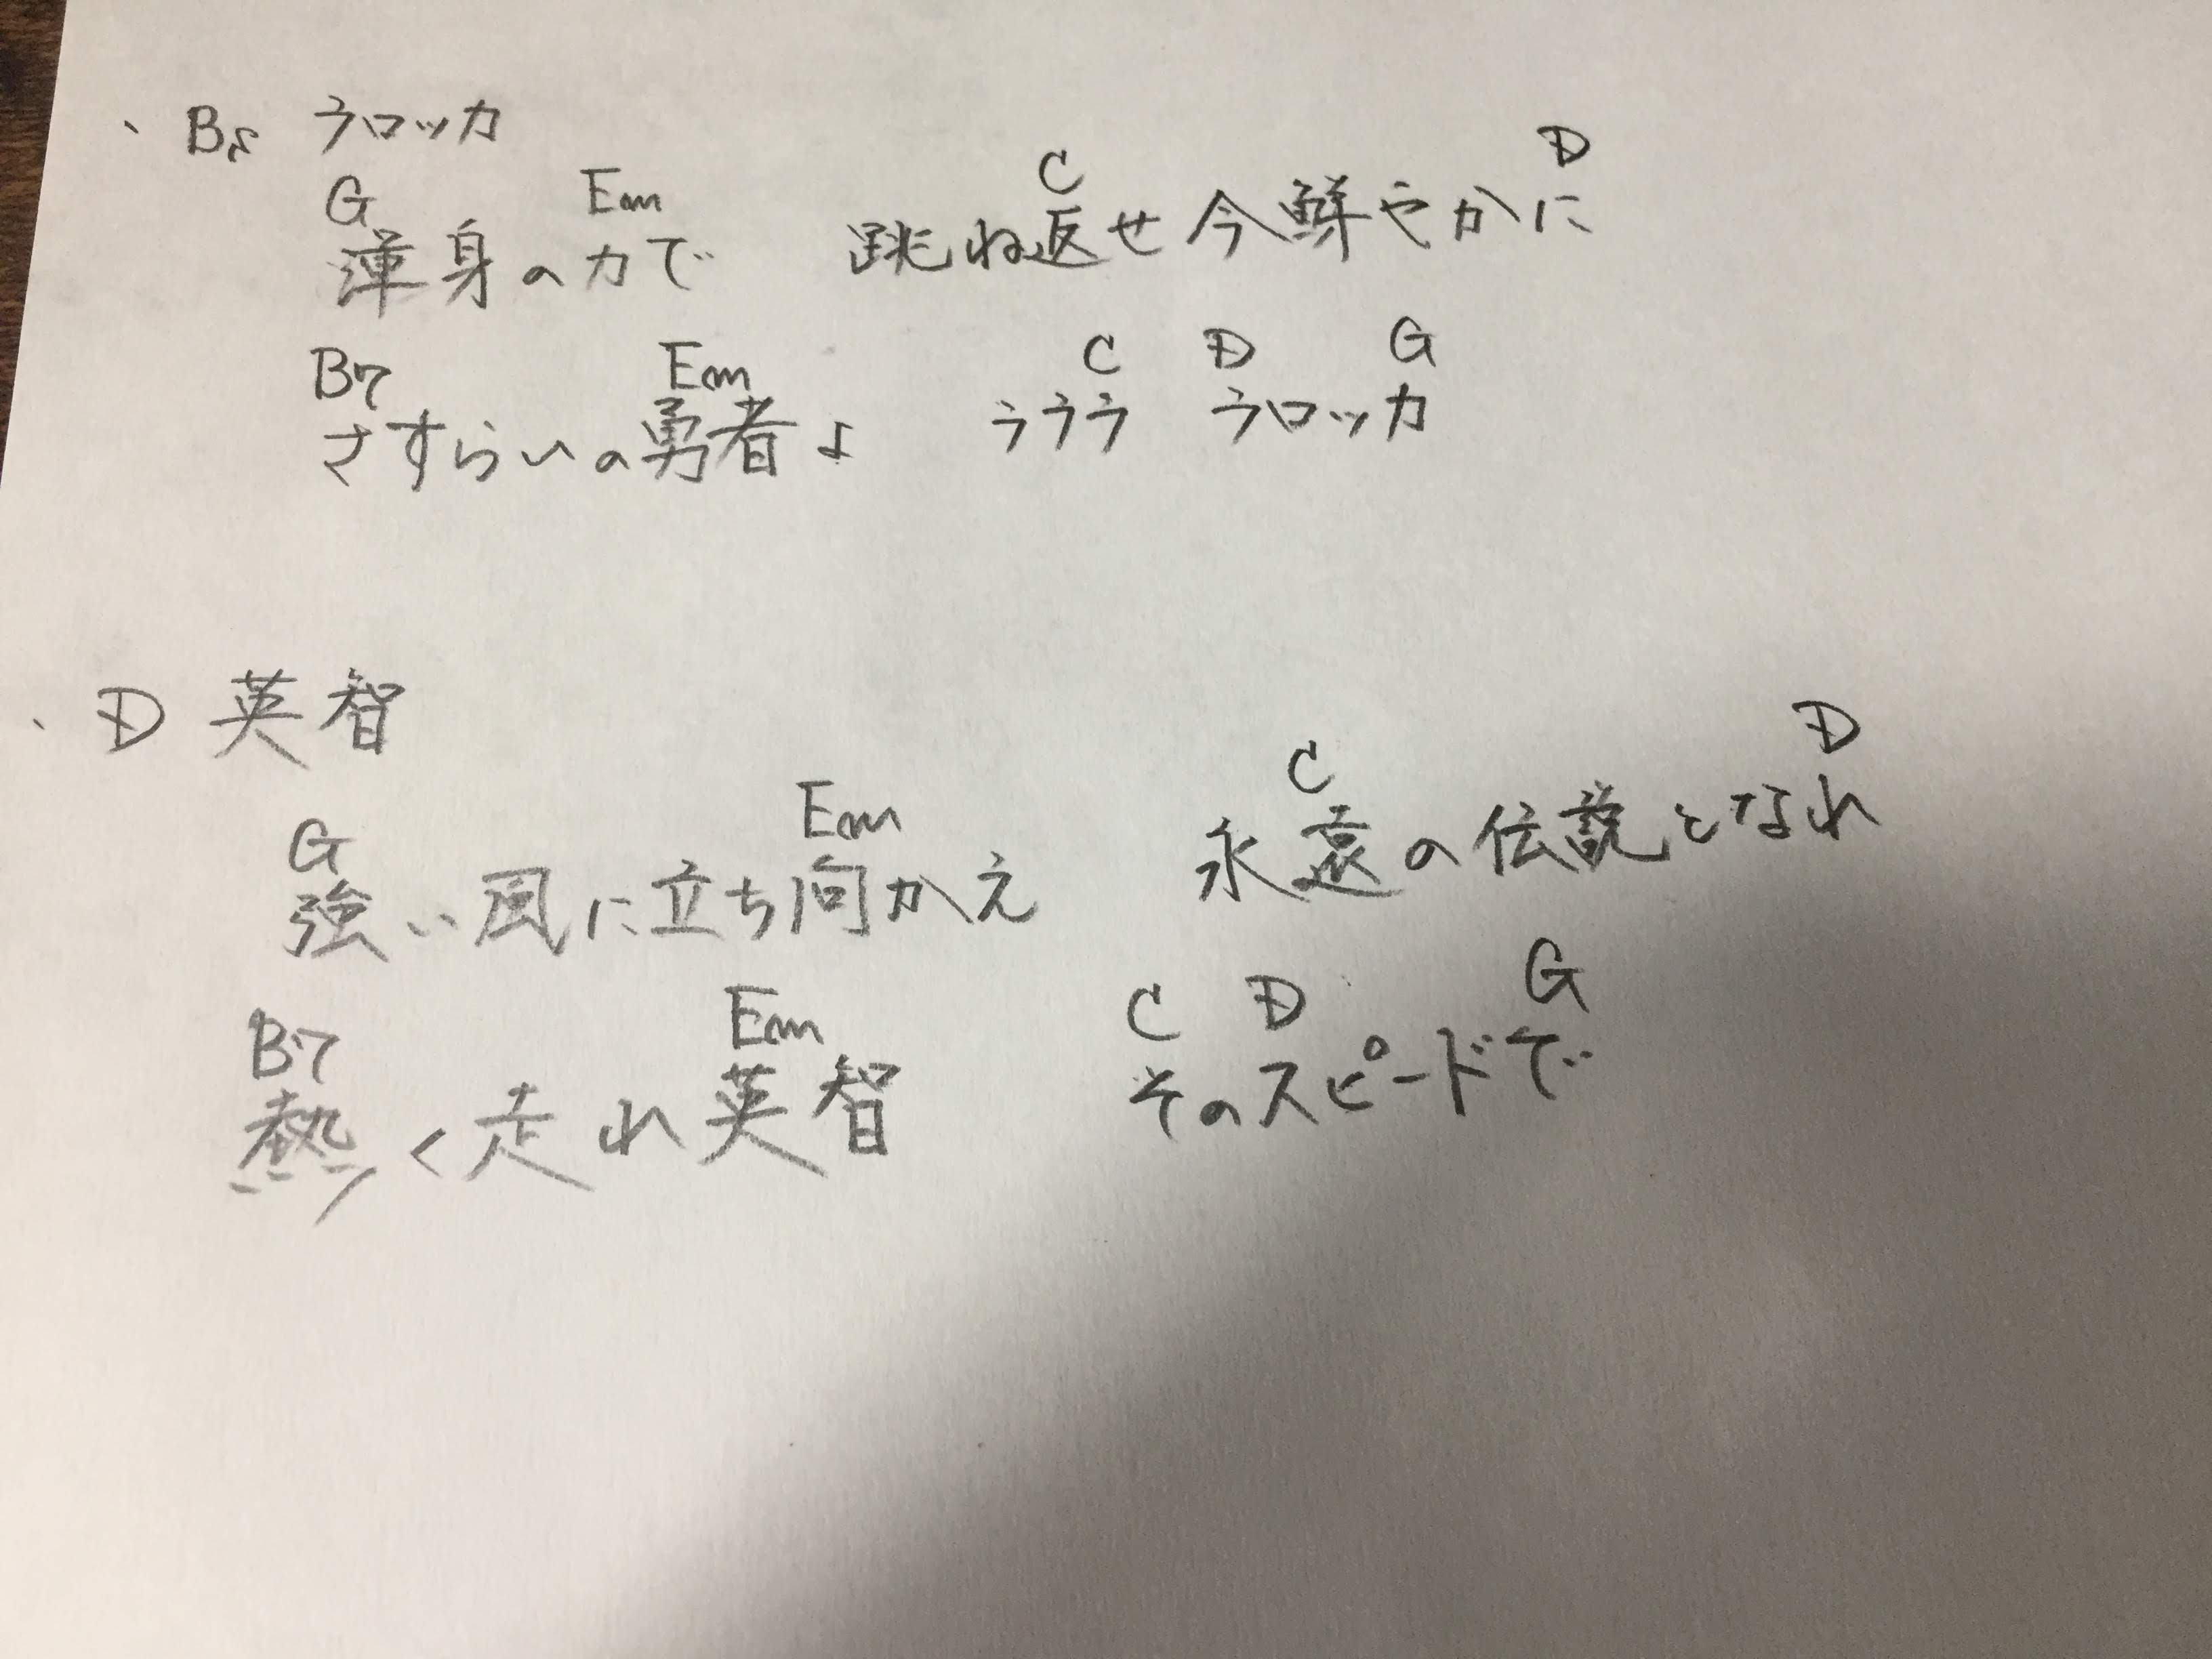 ・Bs ラロッカ
G Em C D
渾身の力で 跳ね返せ今鮮やかに
B7 Em C D G
さすらいの勇者よ ララララロッカ
・D 英智
G Em C D
強い風に立ち向かえ 永遠の伝説となれ
B7 Em C D G
熱く走れ英智 そのスピードで